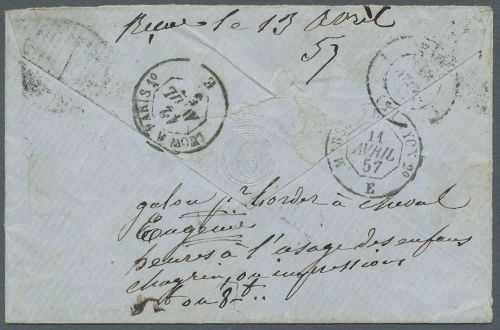 Reçu le 13 Avril
57
LYON A PARIS 1º
12
AVRIL
57
E
LYON 2º
11
AVRIL
57
E
galon pr border à cheval
Eugenie
heures à l'usage des enfans
chagrin, ou impressions
ou